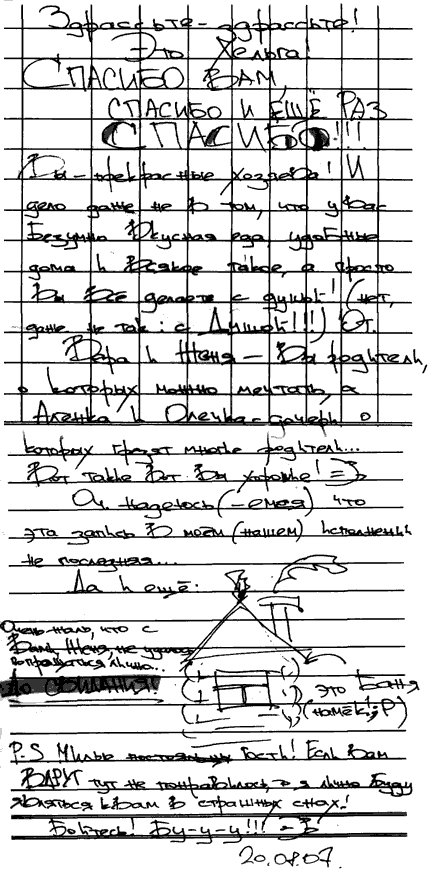 Здрассьте-здрассьте!
Это Хельга!
СПАСИБО ВАМ,
СПАСИБО И ЕЩЁ РАЗ
СПАСИБО!!!
Вы - прекрасные хозяева! И
дело даже не в том, что у Вас
Безумно Вкусная еда, удобные
дома и Всякое такое, а просто
Вы Всё делаете с душой! (нет,
даже не так: с Душой!!!)
Вера и Женя - Вы родители,
о которых можно мечтать, а
Аленка и Олечка - дочери о
которых грезят многие родители...
Вот такие Вот Вы хорошие! =)
Оч. надеюсь (-емся) что
эта запись в моём (нашем) исполнении
не последняя...
Да и ещё:
Очень жаль, что с
Вами, Женя, не удалось
попрощаться лично...
До СВИДАНИЯ!
это Баня
(намёк! ;P)
P.S Милые гости! Если Вам
ВДРУГ тут не понравилось, то я лично Буду
являться к Вам в страшных снах!
Бойтесь! Бу-у-у!!!
20.08.07.